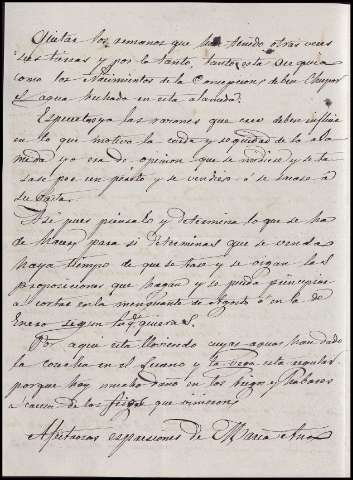 Quitar los romanos que han tenido otras veces
sus tierras y por lo tanto, tanto esta sequia
como los Nacimientos de la Concepcion, deben Chupar
el agua hechada en esta alameda?
Espuestas ya las razones que creo deben influir
en lo que motiva la caida y sequedad de la ala
meda yo era de opinion que se midiese y se ta
sase por un périto y se vendiese ó se sacase á
subasta.
Asi pues piensalo y determina lo que se ha
de hacer para si determinas que se venda
haya tiempo de que se tase y se oigan las
proposiciones que hagan y se pueda principiar
a cortar en la menguante de Agosto ó en la de
Enero segun tu quieras.
Por aqui está lloviendo cuyas aguas han dado
la cosecha en el secano y la vega está regular
porque hay mucho daño en los trigos y habares
a causa de los frios que vinieron
Afectuosas espresiones de Maria Ana